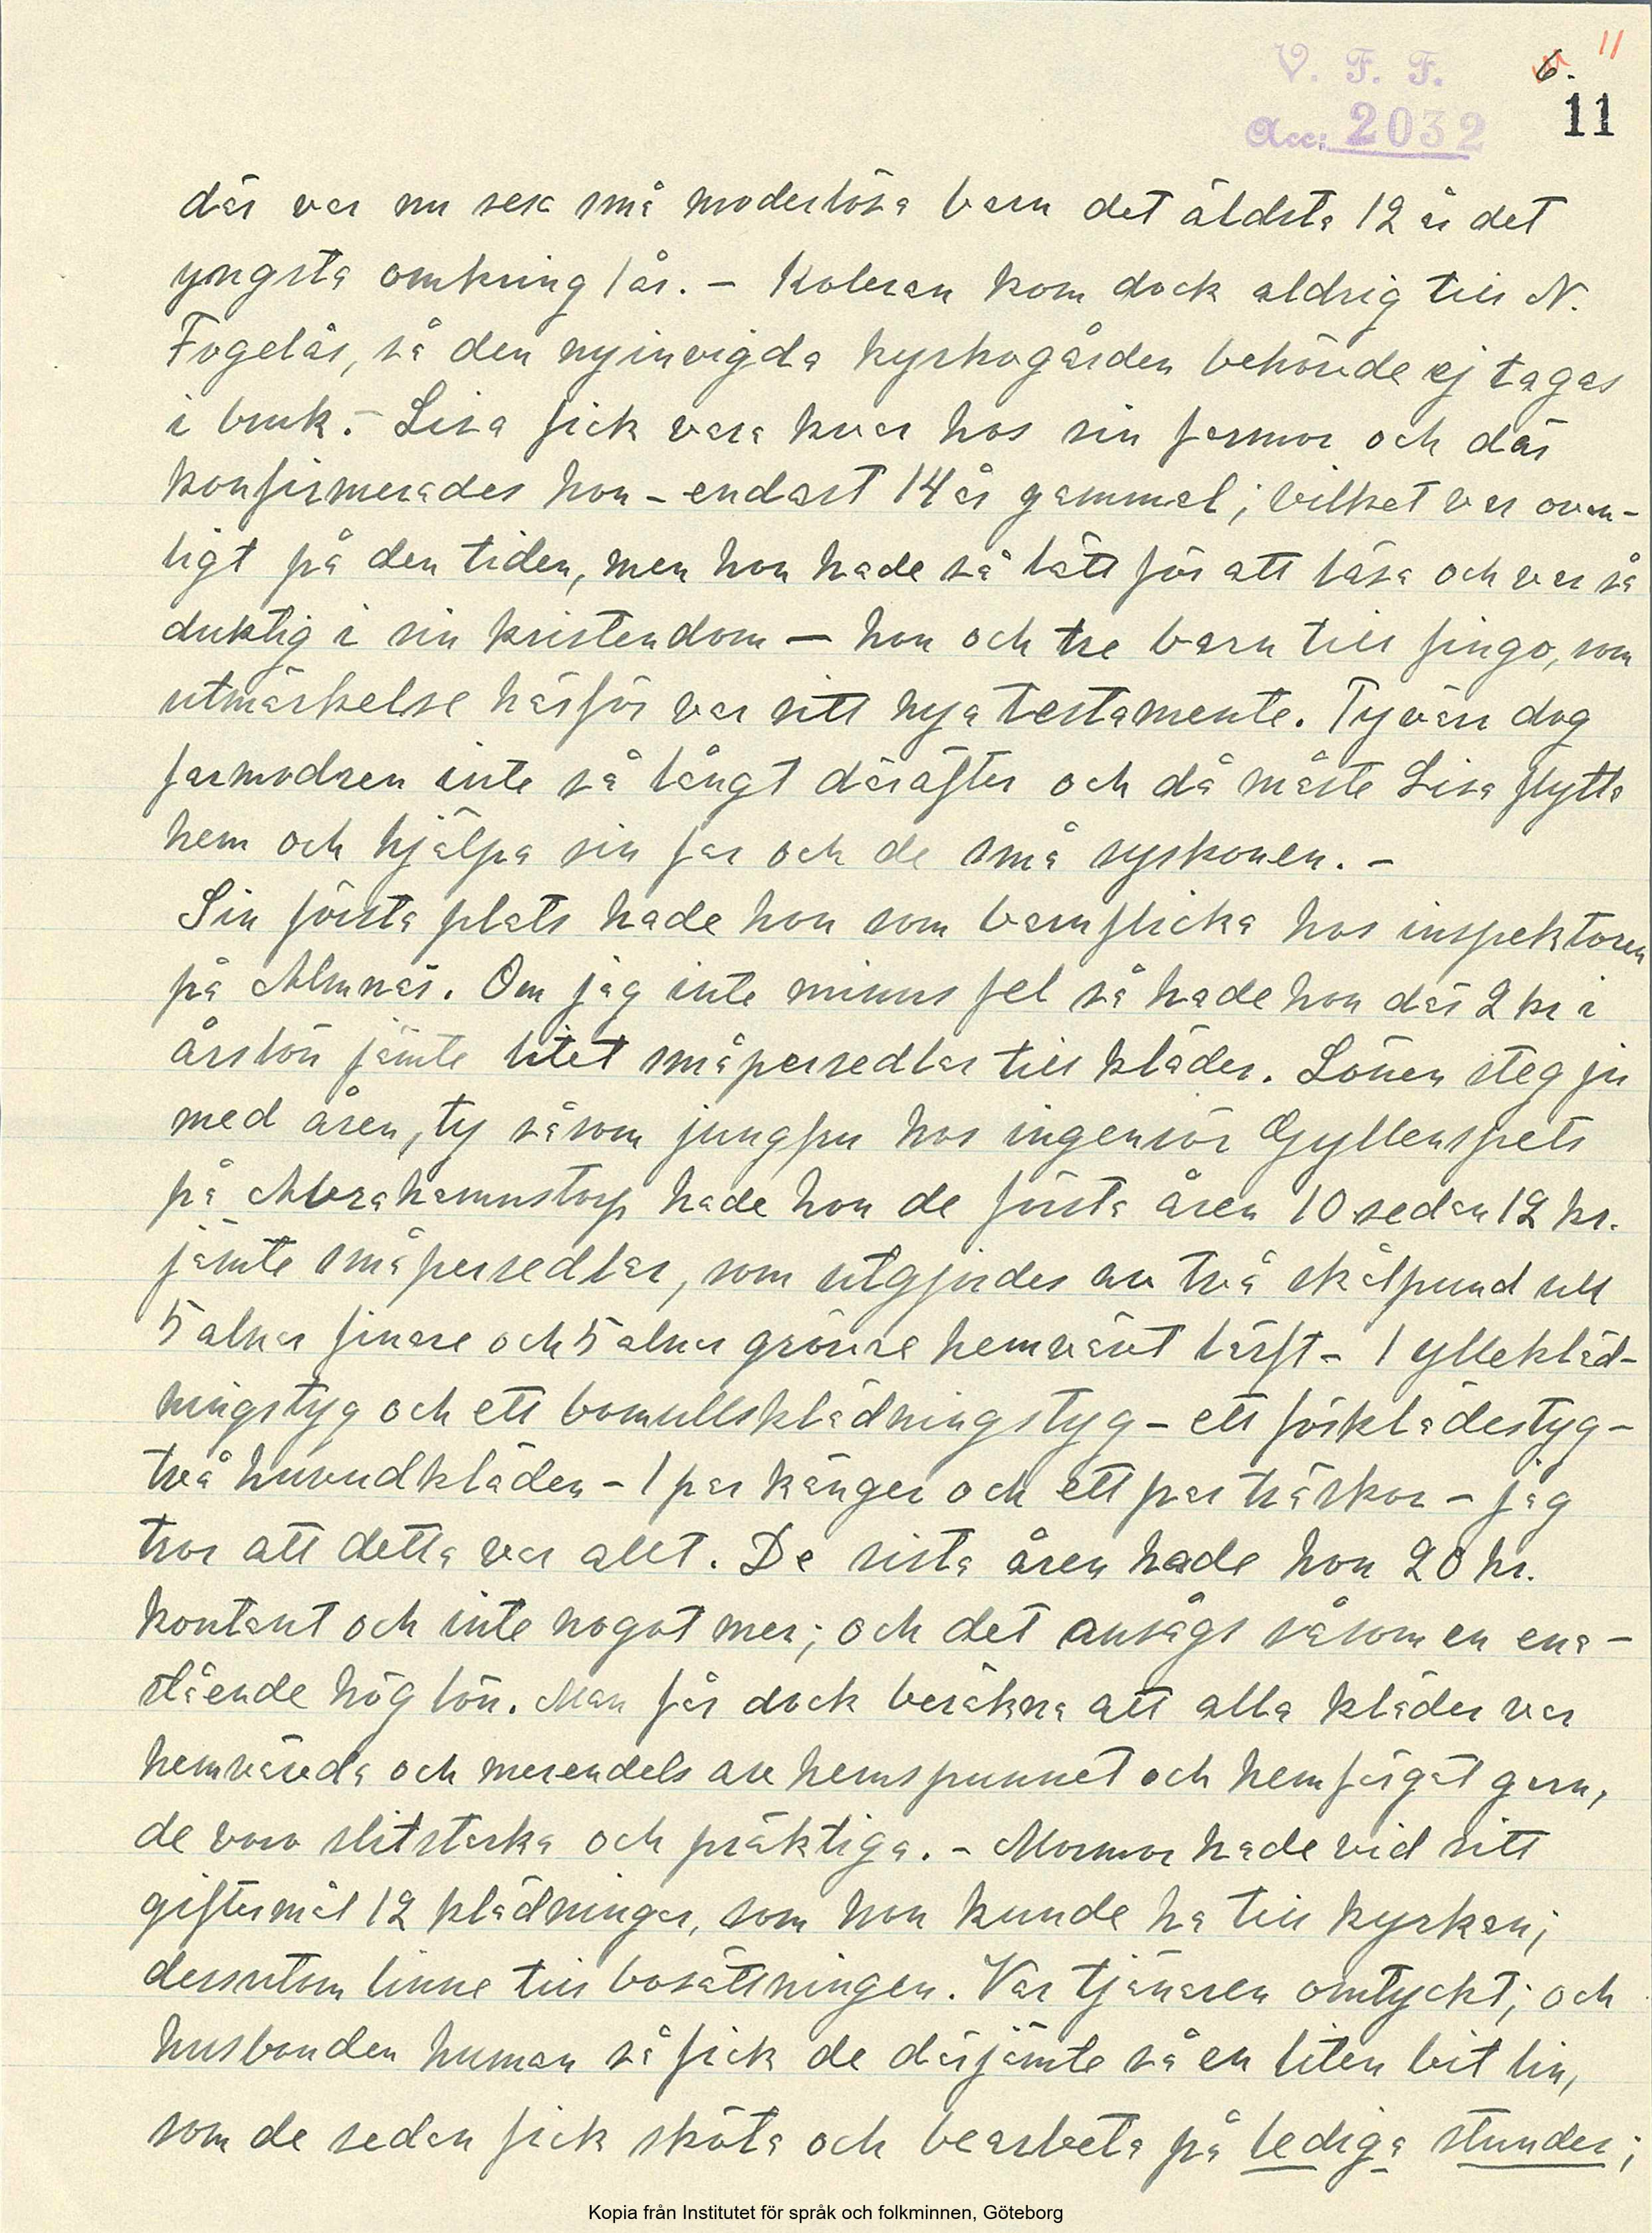 V. F. F.
6. 11
Acc: 2032 11
där var nu sex små moderlösa barn det äldsta 12 år det
yngsta omkring 1 år. – Koleran kom dock aldrig till N.
Fogelås, så den nyinvigda kyrkogården behövde ej tagas
i bruk. – Lisa fick vara kvar hos sin farmor och där
konfirmerades hon – endast 14 år gammal; vilket var ovan-
ligt på den tiden, men hon hade så lätt för att läsa och var så
duktig i sin kristendom – hon och tre barn till fingo, som
utmärkelse härför var sitt nya testamente. Tyvärr dog
farmodren inte så långt däräfter och då måste Lisa flytta
hem och hjälpa sin far och de små syskonen. –
Sin första plats hade hon som barnflicka hos inspektoren
på Almnäs. Om jag inte minns fel så hade hon där 2 kr i
årslön jämte litet småpersedlar till kläder. Lönen steg ju
med åren, ty såsom jungfru hos ingeniör Gyllenspets
på Abrahamnstorp hade hon de första åren 10 sedan 12 kr.
jämte småpersedlar, som utgjordes av två skålpund ull
5 alnar finare och 5 alnar grövre hemvävt lärft – 1 yllekläd-
ningstyg och ett bomullsklädningstyg – ett förklädestyg –
två huvudkläden – 1 par kängor och ett par träskor – jag
tror att detta var allt. De sista åren hade hon 20 kr.
kontant och inte nogot mer; och det ansågs såsom en ena-
stående hög lön. Man får dock beräkna att alla kläder var
hemvävda och merendels av hemspunnet och hemfärgat garn,
de voro slitstarka och präktiga. – Mormor hade vid sitt
giftermål 12 klädningar, som hon kunde ha till kyrkan;
dessutom linne till bosättningen. Var tjänaren omtyckt; och
husbonden human så fick de därjämte så en liten bit lin,
som de sedan fick sköta och bearbeta på lediga stunder;
Kopia från Institutet för språk och folkminnen, Göteborg